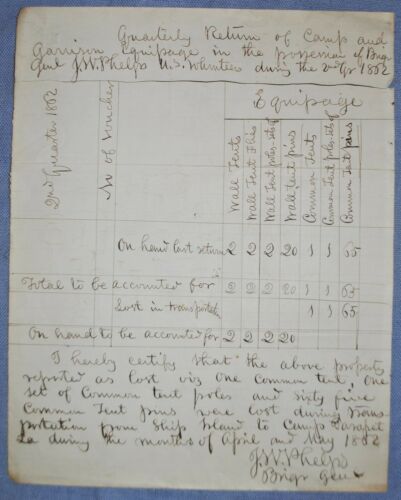 Quarterly Return of Camp and
Garrison Equipage in the possession of Brigr
Genl J.W. Phelps U.S. Volunteers during the 2nd Qr 1862
Equipage
2nd Quarter 1862
No of vouchers
Wall Tents
Wall Tent Flies
Wall Tent poles-sets of
Wall tent pins
Common Tents
Common Tent poles-Sets of
Common Tent pins
On hand last return 2 2 2 20 1 1 65
Total to be accounted for 2 2 2 20 1 1 65
Lost in transportation 1 1 65
On hand to be accounted for 2 2 2 20
I hereby certify that the above property
reported as lost viz One common tent, One
set of Common tent poles and sixty five
Common Tent pins were lost during trans-
portation from Ship Island to Camp Parapet
La during the months of April and May 1862
J.W. Phelps
Brigr Genl